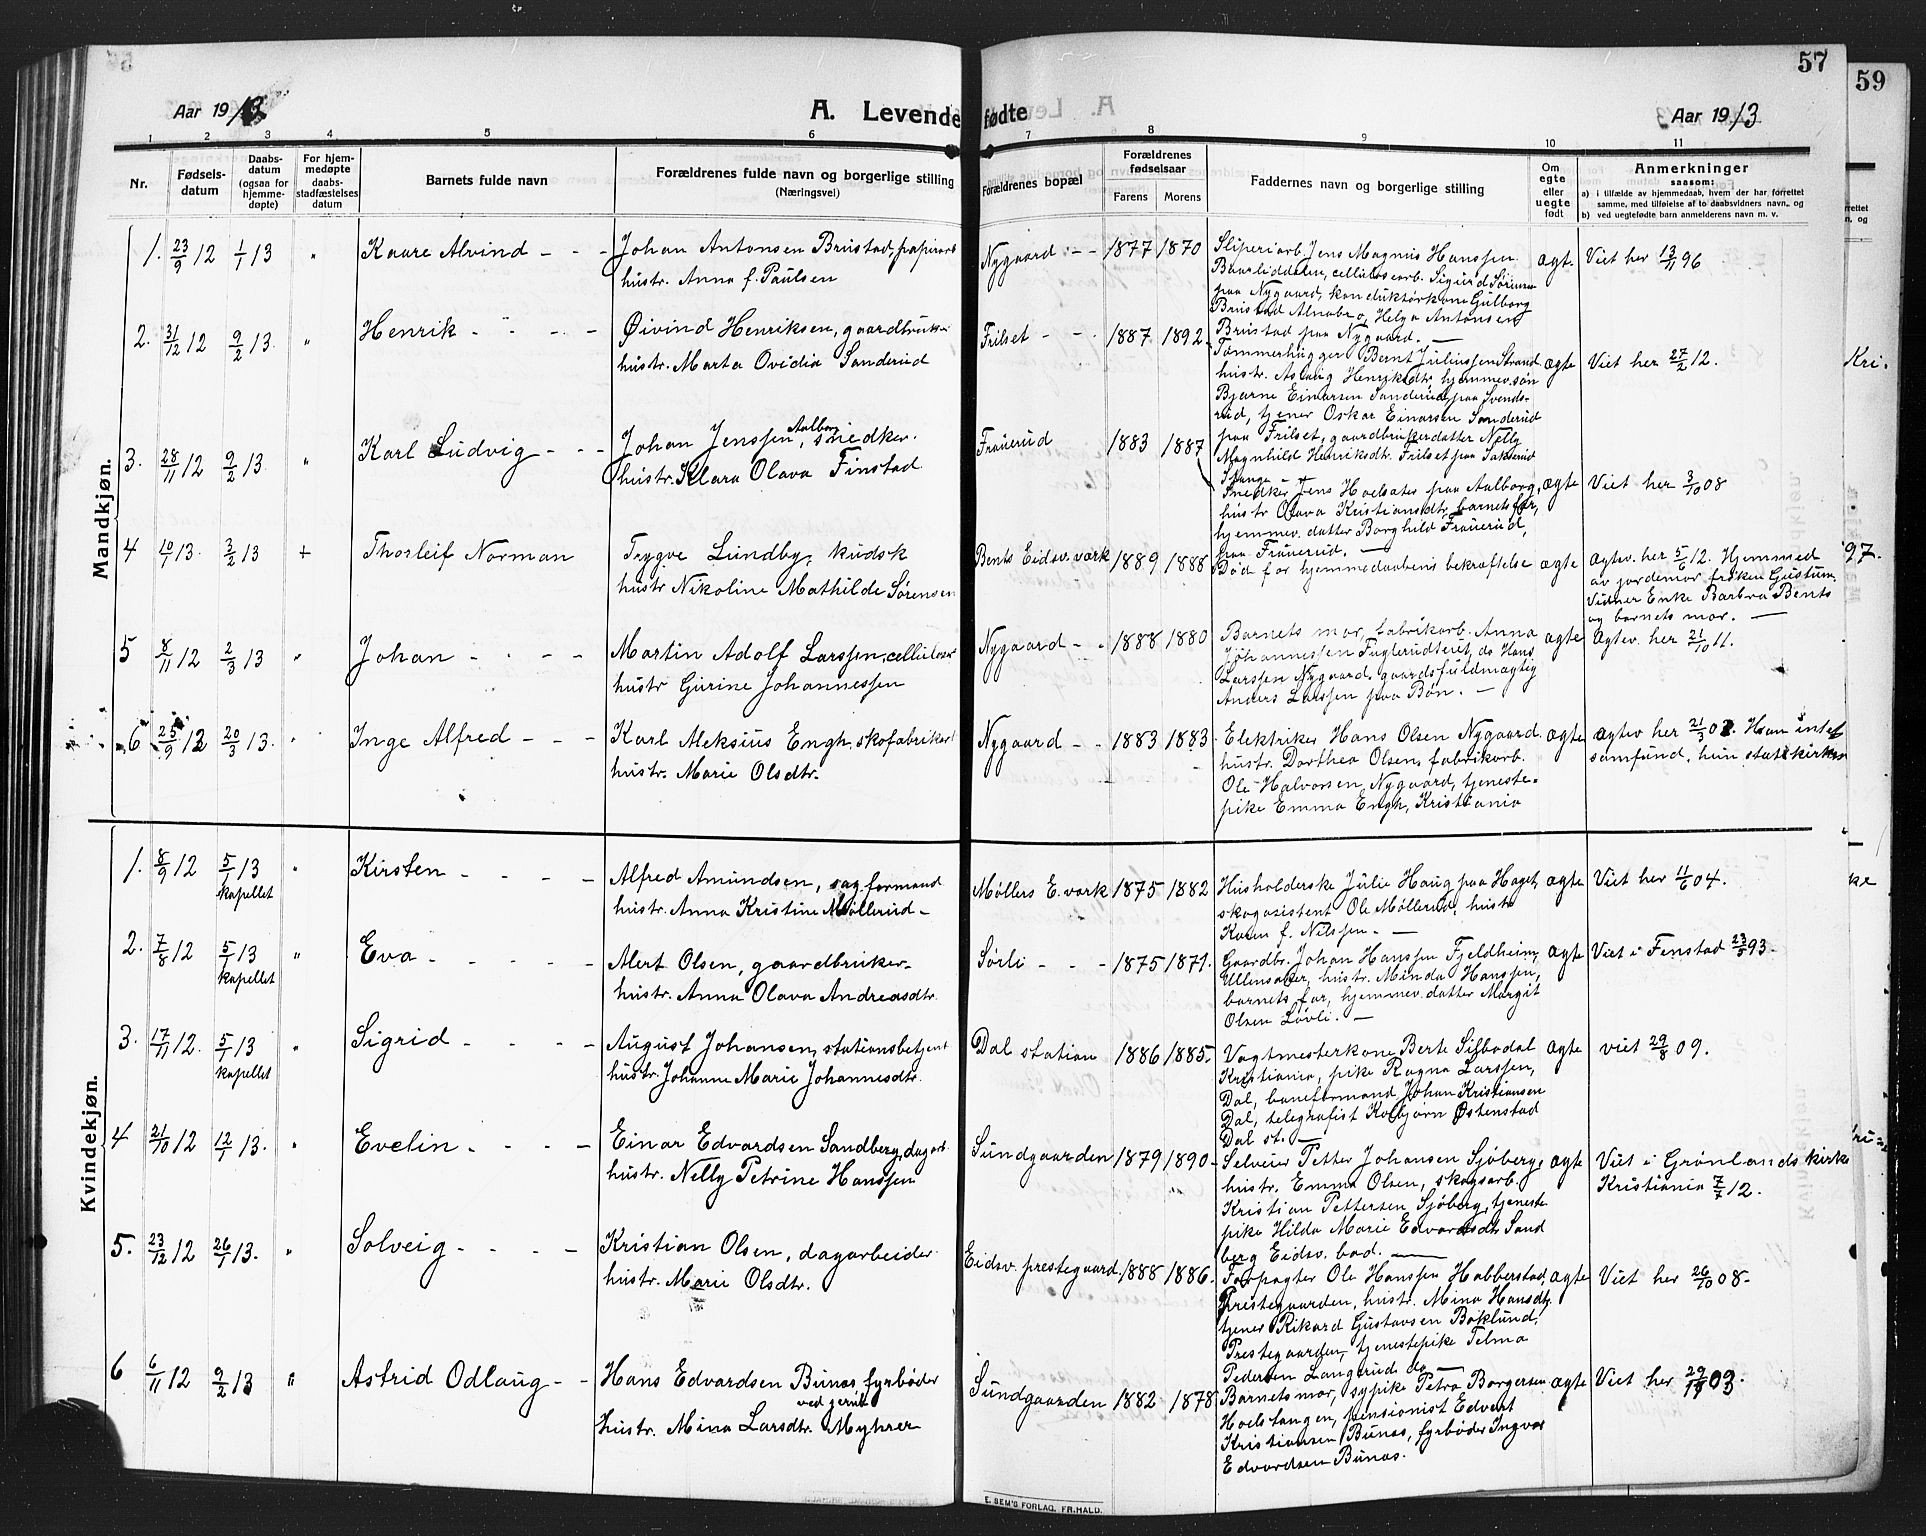 57
59
Aar 1913.
A. Levende fødte
Aar 1913
1 2 3 4 5 6 7 8 9 10 11
Nr.
Fødsels-datum
Daabs-datum (ogsaa for hjemme-døpte)
For hjem-medøpte daabs-stadfæstelses datum
Barnets fulde navn
Forældrenes fulde navn og borgerlige stilling (Næringsvei)
Forældrenes bopæl
Forældrenes fødselsaar
Farens Morens
Faddernes navn og borgerlige stilling
Om egte eller uegte født
Anmerkninger
saasom:
a) i tilfælde av hjemmedaab, hvem der har forrettet samme, med tilføielse af to daabsvidners navn, og
b) ved uegtefødte barn anmelderens navn m. v.
Mandkjøn.
1. 23/9 12 1/1 13 " Kaare Alvind - - -
Johan Antonsen Brustad, papirarb
hustr. Anna f. Paulsen
Nygaard - - 1877 1870
Sliperiarb. Jens Magnus Hanssen
Baarliddalen, cellulosearb. Sigurd
paa Nygaard, konduktørkone Gulborg
Brustad Alnabro, Helga Antonsen
Brustad paa Nygaard. —
ægt. Viet her 13/11 96
2. 31/12 12 9/2 13. " Henrik - " - - -
Øivind Henriksen, gaardbruker
hustr. Marta Ovidia Sanderud
Frilset - - 1887 1892
Tømmerhugger Bernt Juliussen Strand
hustr. Aslaug Henriksdtr, hjemmev. søn
Bjarne Einarsen Sanderud paa Svends-
rud, tjener Oskar Einarsen Sanderud
paa Frilset, gaardbrukerdatter Nelly
Magnhild Henriksdtr. Frilset paa
Stange
ægte Viet her 27/2 12.
3. 28/11 12 9/2 13. " Karl Ludvig - - -
Johan Jenssen Aalborg, snedker.
hustr. Klara Olava Finstad
Frauerud 1883 1887
Snedker Jens Hoelsater paa Aalborg,
hustr Olava Kristiansdtr, barnets far,
hjemmev. datter Borghild Frauerud,
paa Frauerud. —
ægte Viet her 3/10 08
4 10/1 13. 3/2 13 + Thorleif Norman
Trygve Lundby, kudsk
hustr Nikoline Mathilde Sørensen
Bents Eidsv. værk 1889 1888
Død før hjemmedaabens bekræftelse
ægte Ægtev. her 5/6 12. Hjemmed
av jordemor frøken Gustum.
Vidner Enke Barbra Bents
og barnets mor. —
5 8/11 12 2/3 13 " Johan - - - -
Martin Adolf Larssen, cellulosar
hustr Gurine Johannessen
Nygaard - - 1888 1880
Barnets mor, fabrikarb. Anna
Johannessen Fuglerudteiet, do Hans
Larssen Nygaard, gaardsfuldmægtig
Anders Larssen paa Bøn. —
ægte Ægtev. her 21/10 11.
6 25/9 12 20/3 13. " Inge Alfred - - -
Karl Aleksius Engh, skofabrikar
hustr. Marie Olsdtr.
Nygaard - - 1883 1883.
Elektriker Hans Olsen Nygaard
hustr. Dorthea Olsen, fabrikarb.
Ole Halvorsen Nygaard, tjeneste-
pike Emma Engh, Kristiania
ægte Ægtev her 21/3 Han intet
samfund, hun statskirken
Kvindekjøn.
1. 8/9 12 5/1 13 kapellet " Kirsten - - - -
Alfred Amundsen, sagformand
hustr. Anna Kristine Møllerud -
Møllers E. værk 1875 1882
Husholderske Julie Haug paa Haget,
skogasistent Ole Møllerud, hustr
Karen f. Nilssen. - —
ægte Viet her 11/6 04.
2. 7/8 12 5/1 13 kapellet " Eva - - - -
Alert Olsen, gaardbruker-
hustr. Anna Olava Andreasdtr.
Sørli - - - 1875 1871.
Gaardbr. Johan Hanssen Fjeldheim,
Ullensaker, hustr. Minda Hanssen,
barnets far, hjemmev. datter Margit
Olsen Løvli. —
ægte Viet i Fenstad 23/5 93.
3. 17/11 12. 5/1 13 kapellet " Sigrid - - - -
August Johansen, stationsbetjent
hustr. Johanne Marie Johannesdtr.
Dal station 1886 1885.
Vogtmesterkone Berte Silbodal
Kristiania, pike Ragna Larssen,
Dal, baneformand Johan Kristiansen
Dal, telegrafist Kolbjørn Østenstad
Dal st. —
ægte viet 29/8 09.
4 21/10 12 12/1 13. " Evelin - - - -
Einar Edvardsen Sandberg, dagarb
hustr. Nelly Petrine Hanssen
Sundgaarden 1879 1890
Selveier Petter Johansen Sjøberg,
hustr. Emma Olsen, skogsarb.
Kristian Pettersen Sjøberg, tjeneste
pike Hilda Marie Edvardsdtr Sand
berg Eidsv. bad. —
ægte Viet i Grønlands kirke
Kristiania 7/7 12.
5. 23/12 12 26/1 13. " Solveig - - - -
Kristian Olsen, dagarbeider
hustr. Marie Olsdtr.
Eidsv. prestegaard 1888 1886.
Forpagter Ole Hanssen Habberstad,
Prestegaarden, hustr. Mina Hansdtr.
tjener Rikard Gustavsen Boklund,
Prestegaarden, tjenestepike Telma
Pedersen Langerud do —
ægte Viet her 26/10 08-
6 6/11 12 9/2 13 " Astrid Odlaug - -
Hans Edvardsen Bunæs, fyrbøder
ved jernb
hustr. Mina Larsdtr. Myhrer
Sundgaarden 1882 1878
Barnets mor, sypike Petra Borgersen
Hoelstangen, pensionist Edvert
Kristiansen Bunæs, fyrbøder Ingvar
Edvardsen Bunæs.
ægte Viet her 03.
E. SEM'S FORLAG, FR.HALD.
Kri.
97.